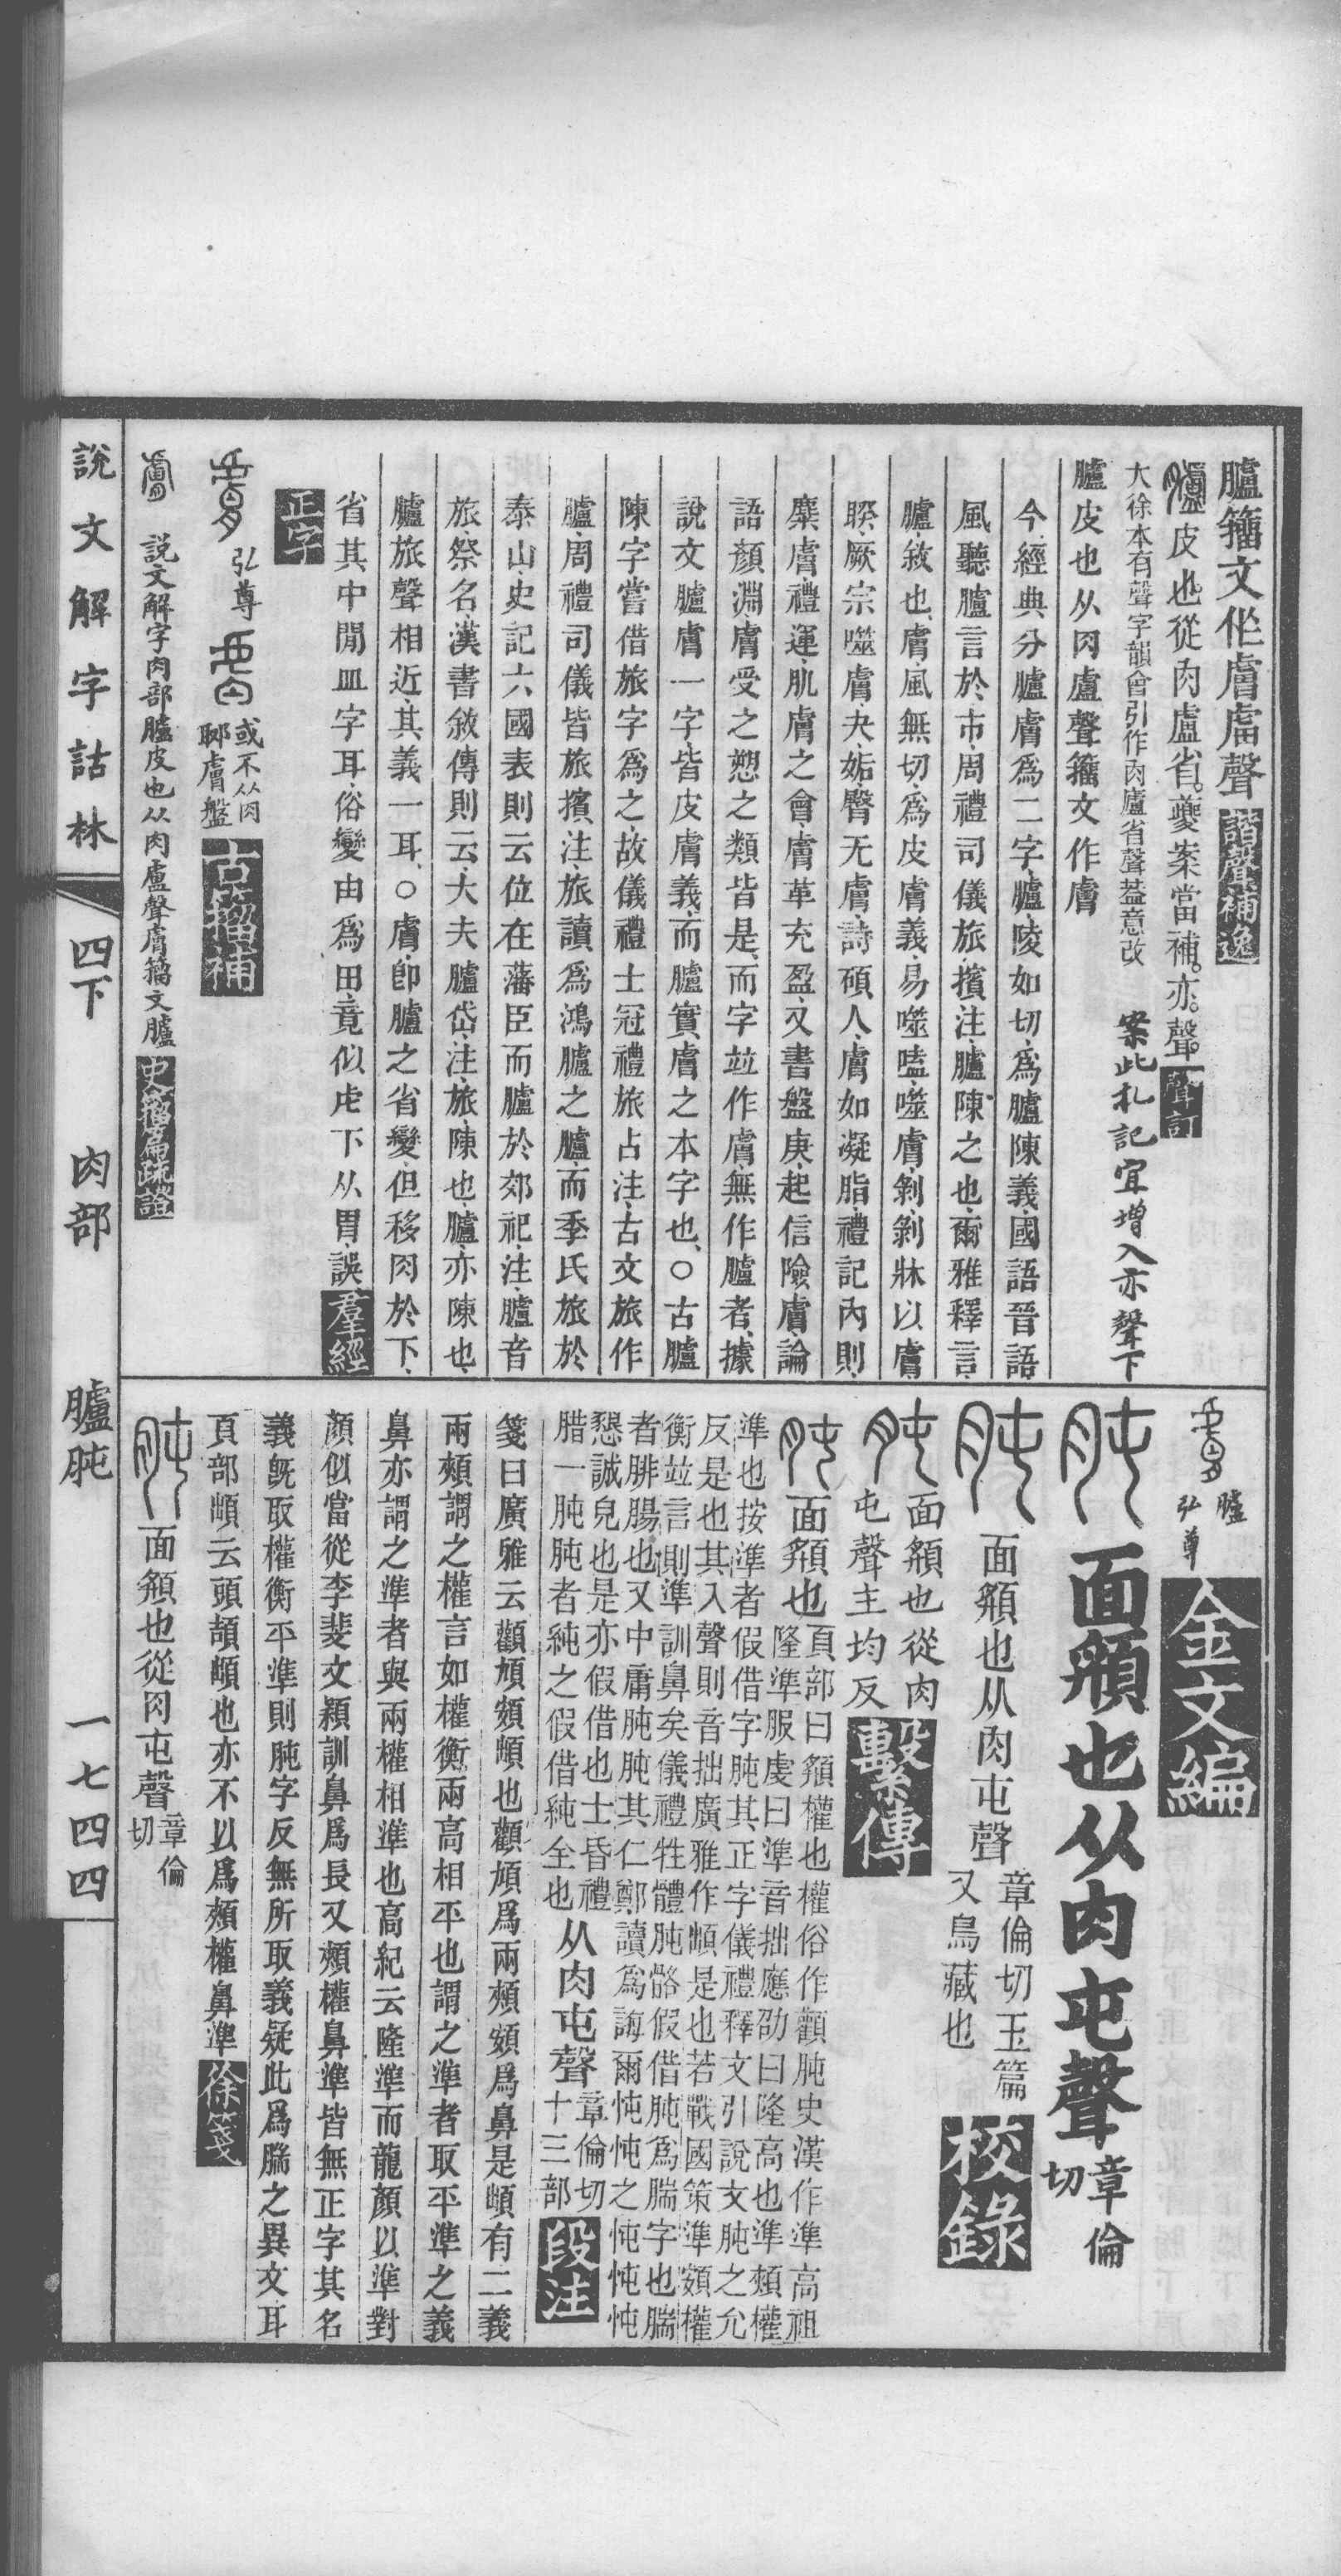 臚籀文作膚膚聲諧聲補逸
皮也從肉盧省夔案當補亦聲聲訂
大徐本有聲字韻會引作肉盧省聲葢意改　案此札記宜增入亦聲下
臚皮也从肉盧聲籀文作膚
今經典分臚膚為二字臚陵如切為臚陳義國語晉語
風聽臚言於市周禮司儀旅擯注臚陳之也爾雅釋言
臚敘也膚風無切為皮膚義易噬嗑噬膚剝剝牀以膚
睽厥宗噬膚夬姤臀无膚詩碩人膚如凝脂禮記內則
麋膚禮運肌膚之會膚革充盈又書盤庚起信險膚論
語顏淵膚受之愬之類皆是而字竝作膚無作臚者據
說文臚膚一字皆皮膚義而臚實膚之本字也○古臚
陳字嘗借旅字為之故儀禮士冠禮旅占注古文旅作
臚周禮司儀皆旅擯注旅讀為鴻臚之臚而季氏旅於
泰山史記六國表則云位在藩臣而臚於郊祀注臚音
旅祭名漢書敘傳則云大夫臚岱注旅陳也臚亦陳也
臚旅聲相近其義一耳○膚卽臚之省變但移肉於下
省其中閒皿字耳俗變由為田竟似虍下从胃誤羣經
正字
弘尊　或不从肉　䣙膚盤　古籀補
說文解字肉部臚皮也从肉盧聲膚籀文臚史籀篇疏證
臚　弘尊　金文編
面頯也从肉屯聲章倫切
面頯也从肉屯聲章倫切玉篇又鳥藏也校錄
面頯也從肉屯聲主均反繫傳
面頯也頁部曰頯權也權俗作顴肫史漢作準高祖
隆準服虔曰準音拙應劭曰隆高也準頰權
準也按準者假借字肫其正字儀禮釋文引說文肫之允
反是也其入聲則音拙廣雅作䪼是也若戰國策準頞權
衡竝言則準訓鼻矣儀禮牲體肫骼假借肫為腨字也腨
者腓腸也又中庸肫肫其仁鄭讀為誨爾忳忳之忳忳忳
懇誠皃也是亦假借也士昏禮
腊一肫肫者純之假借純全也从肉屯聲章倫切十三部段注
箋曰廣雅云顴頄頞䪼也顴頄為兩頰頞為鼻是䪼有二義
兩頰謂之權言如權衡兩高相平也謂之準者取平準之義
鼻亦謂之準者與兩權相準也高紀云隆準而龍顏以準對
顏似當從李斐文穎訓鼻為長又頰權鼻準皆無正字其名
義旣取權衡平準則肫字反無所取義疑此為腨之異文耳
頁部䪼云頭頡䪼也亦不以為頰權鼻準徐箋
面頯也從肉屯聲章倫切
說文解字詁林　四下　肉部　臚肫　一七四四